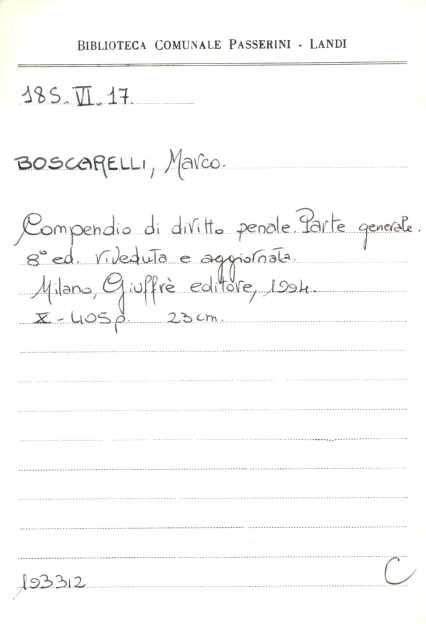 BIBLIOTECA COMUNALE PASSERINI - LANDI
185. VI. 17.
BOSCARELLI, Marco.
Compendio di diritto penale. Parte generale.
8º ed. riveduta e aggiornata.
Milano, Giuffrè editore, 1994.
X - 405 p. 23 cm.
193312
C